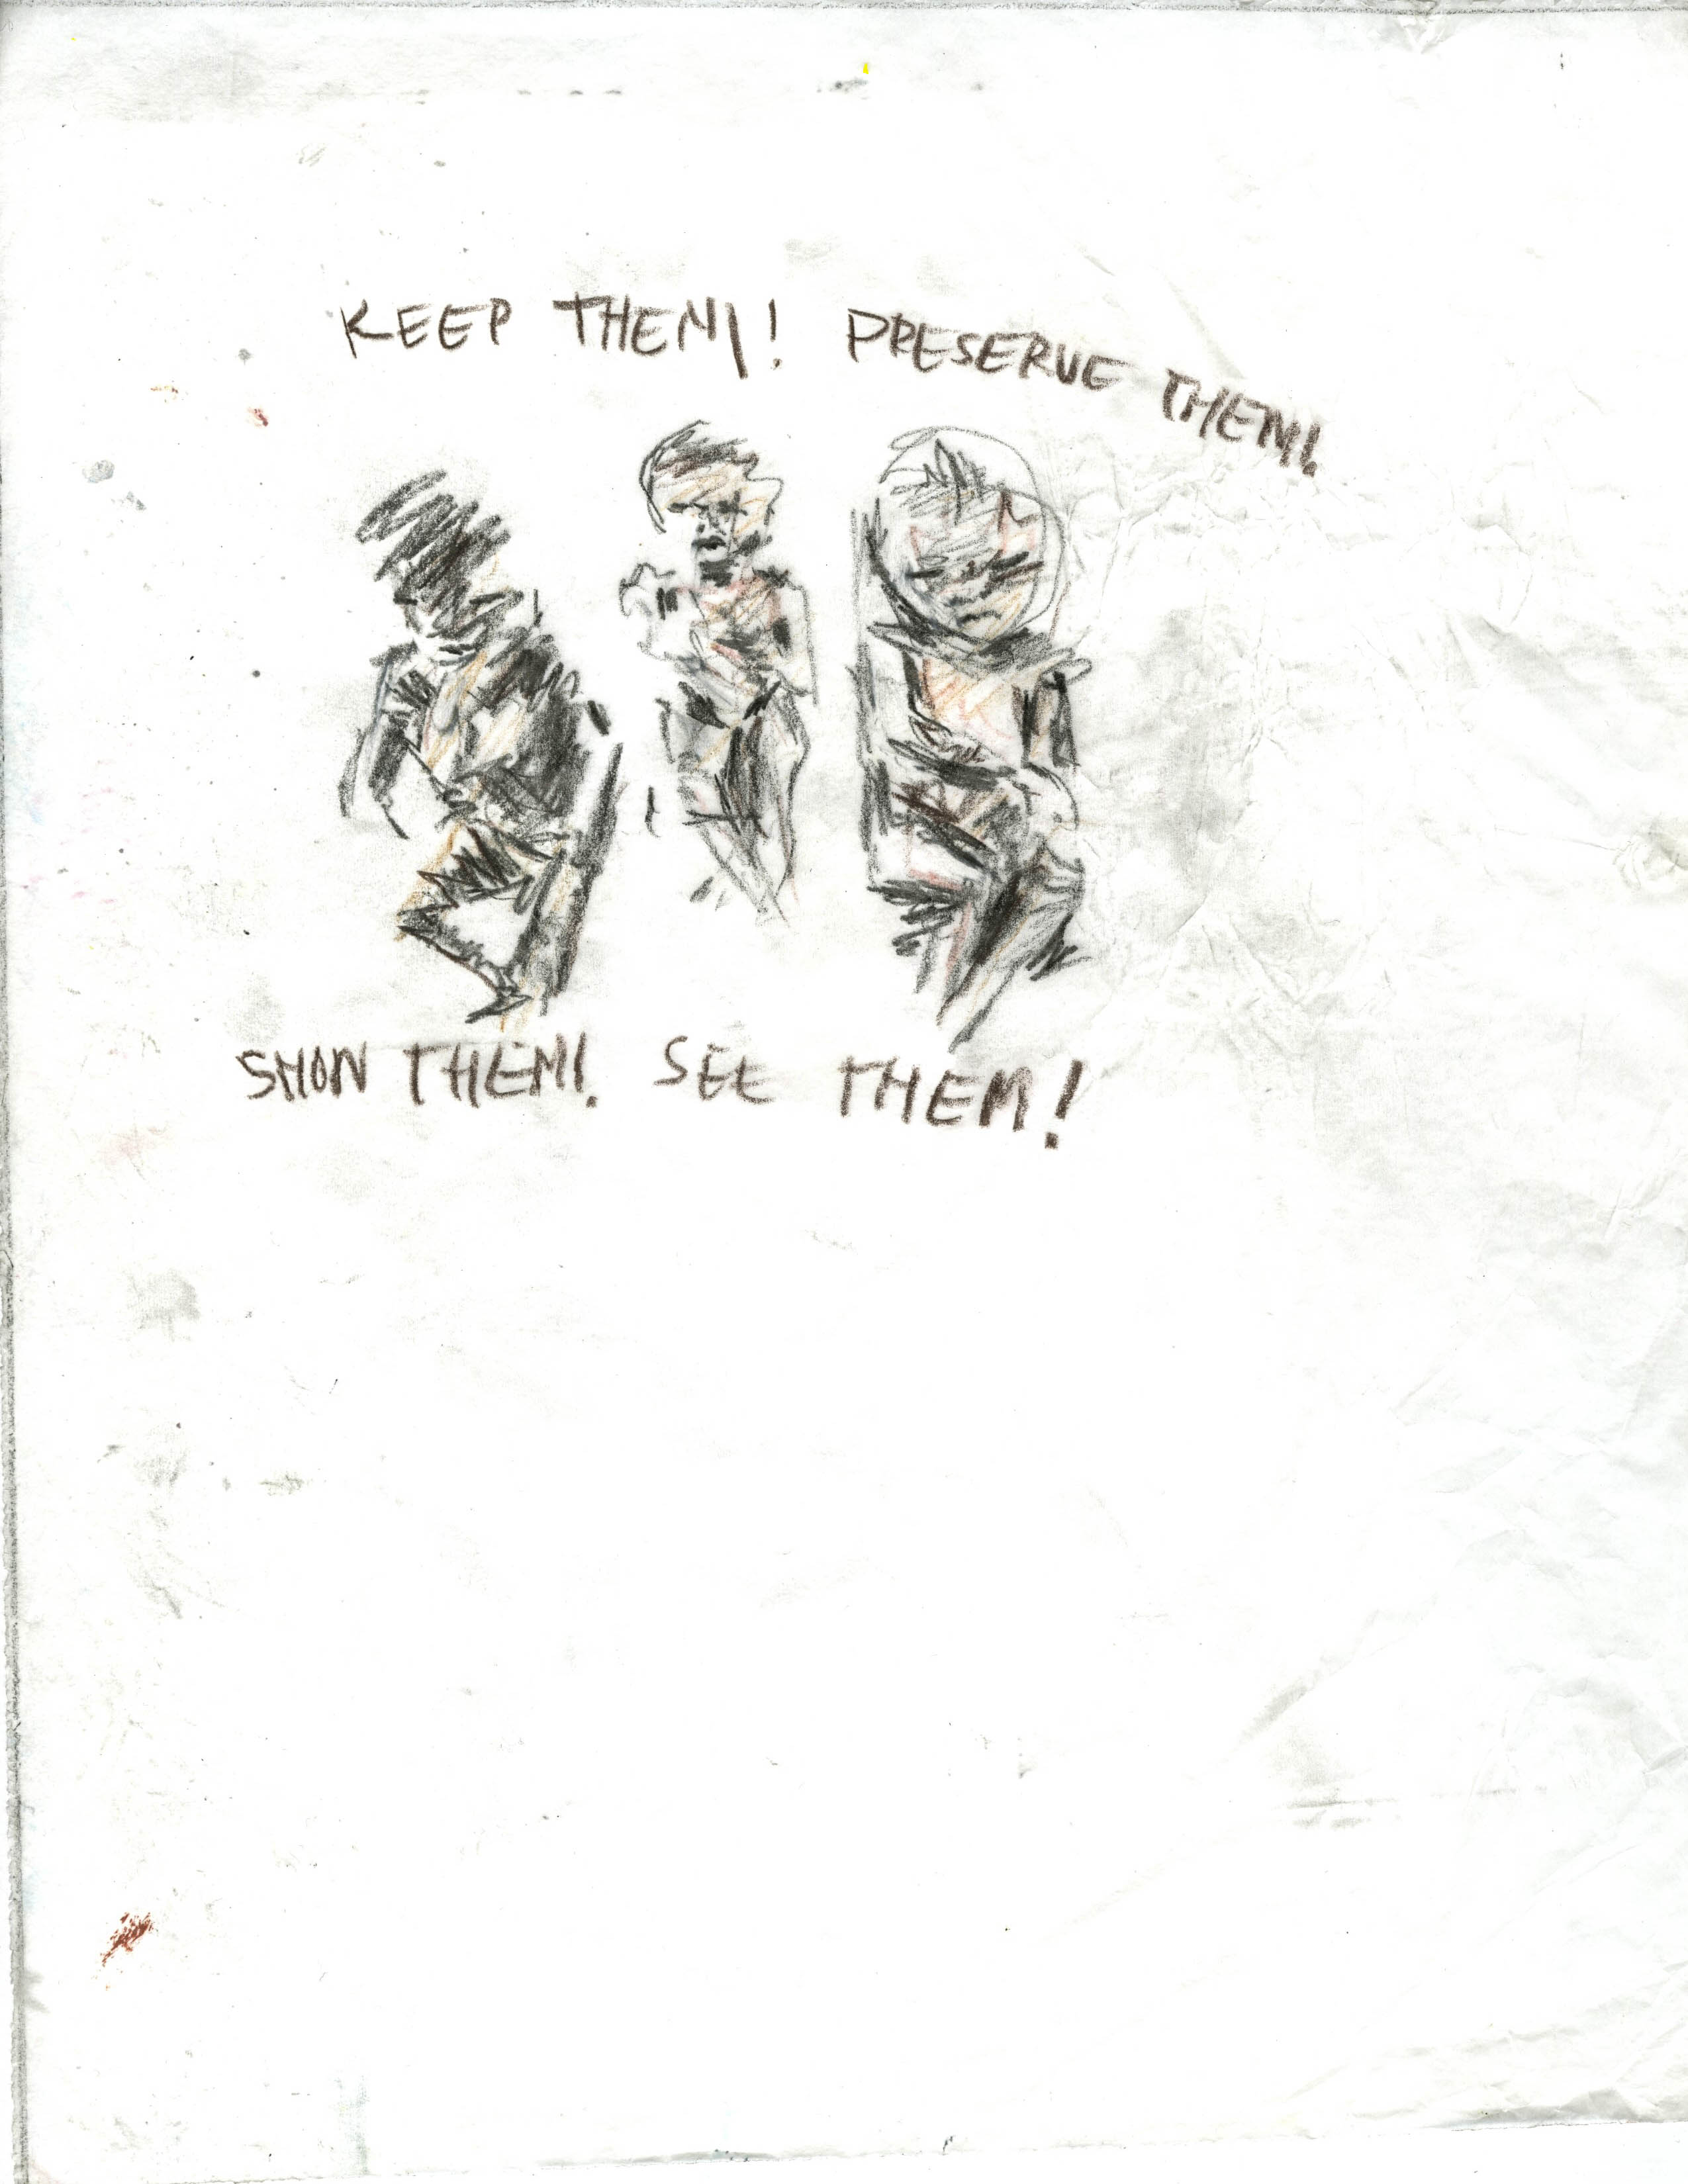 KEEP THEM! PRESERVE THEM!
SHOW THEM! SEE THEM!